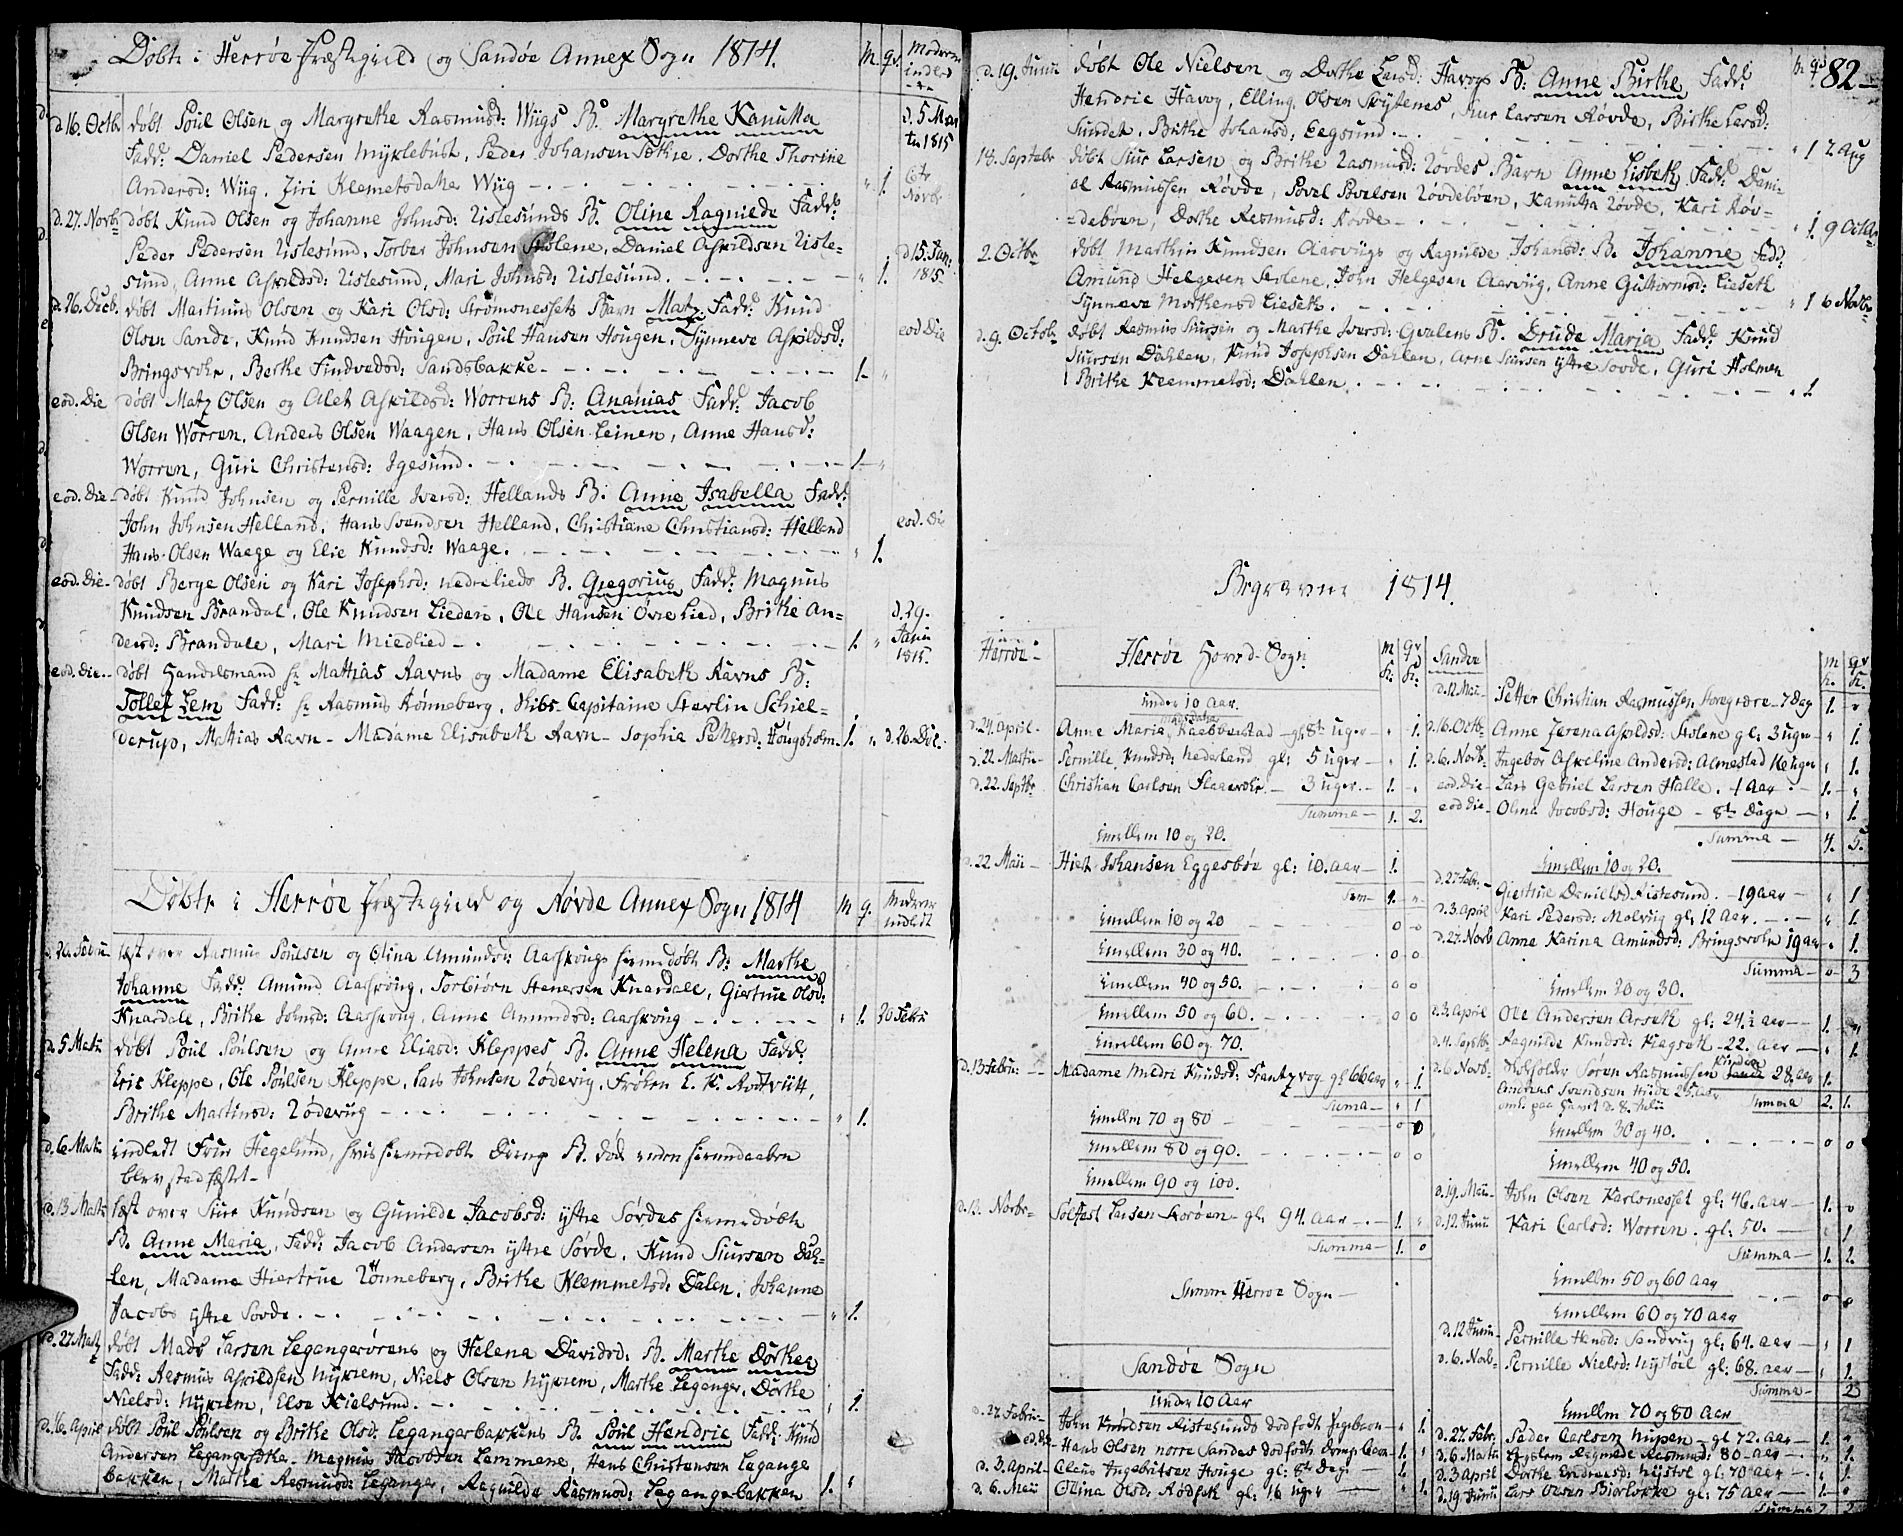 Døbte i Herrøe Præstegield og Sandøe Annex Sogn 1814. M. q. Moderen indled
d. 16. Octb. døbt Poul Olsen og Margrethe Rasmusd: Wiigs B. Margrethe Kanutta
Fadd: Daniel Pedersen Myklebust, Peder Johansen Sæthre, Dorthe Thorine
Andersd: Wiig, Ziri Klemetsdatter Wiig " 1.
d. 27. Novb. døbt Knud Olsen og Johanne Johnsd: Ristesunds B. Oline Ragnilde Fadd:
Peder Pedersen Ristesund, Torber Johnsen Stolene, Daniel Askildsen Riste-
sund, Anne Askildsd: Ristesund, Mari Johnsd: Ristesund. " 1. d. 15. Jan: 1815
d. 26. Decb. døbt Martinus Olsen og Kari Olsd: Strømnessets Barn Matz. Fadd: Knud
Olsen Sande, Knud Knudsen Hougen, Poul Hansen Hougen, Synneve Askildsd: eod Die
Bringsvohr, Berthe Findvedsd: Sandsbakke 1 "
eod. Die døbt Matz Olsen og Alet Askildsd: Worrens B: Ananias Fadd: Jacob
Olsen Worren, Anders Olsen Waagen, Hans Olsen Leinen, Anne Hansd:
Worren, Guri Christensd: Igesund. 1 "
eod. Die døbt Knud Johnsen og Pernille Iversd: Hellands B. Anne Isabella Fadd:
John Johnsen Helland, Hans Svendsen Helland, Christiane Christiansd: Helland eod. Die
Hans Olsen Waage og Elie Knudsd: Waage. " 1.
eod. Die døbt Berge Olsen og Kari Josephsd: nedrelieds B. Gregorius Fadd: Magnus
Knudsen Brandal, Ole Knudsen Lieden, Ole Hansen Øvre Lied, Brithe An-
dersd: Brandale, Mari Miedlied 1. " d. 29. Janu 1815.
eod. Die døbt Handelsmand hr Mathias Ravns og Madame Elisabeth Ravns B:
Tollef Lem Fadd: hr Rasmus Rønneberg, Skibs-Capitaine Sterlin Schiel-
derup, Mathias Ravn - Madame Elisabeth Ravn - Sophia Petersd: Hougsholm 1. " d. 26. Dec.
Døbte i Herrøe Præstegield og Røvde Annex Sogn 1814 M q. Moderen indledt
d. 20. Febru læst over Rasmus Poulsen og Olina Amundsd: Aarskougs hiemedøbte B: Marthe
Johanne Fadd: Amund Aarskoug, Torbiørn Knardale, Giertrue Olsd:
Knardale, Brithe Johnsd: Aarskoug, Anne Amundsd: Aarskoug " 1. 20 Febr
d. 5 Martii døbt Poul Poulsen og Anne Eliasd: Kleppes B. Anne Helena Fadd:
Eric Kleppe, Ole Poulsen Kleppe, Lars Johnsen Rødevig, Frøken E. K.
Brithe Martinsd: Rødevig " 1.
d. 6 Marti indledt Frue Hegelund, hvis hiemedøbte Drenge B. død inden hiemedaaben
blev stadfæstet.
d. 13 Marti læst over Siur Knudsen og Gunilde Jacobsd: ystre Sørdes hiemedøbte
B. Anne Maria, Fadd: Jacob Andersen ystre Sørde, Knud Siursen Dah-
len, Madame Hiertrue Rønneberg, Brithe Klemmetsd: Dalen, Johanne
Jacobs ystre Sovde. " 1.
d. 27 Marti døbt Mads Larsen Legangerørens og Helena Davidsd: B. Marthe Dorthea
Fadd: Rasmus Askildsen Nykrem, Niels Olsen Nykrem, Marthe Leganger, Dorthe
Nielsd: Nykrem, Elsa Kielsund. " 1.
d. 16 April døbt Poul Poulsen og Brithe Olsd: Legangerbakkens B. Poul Hendric Fadd: Knud
Andersen Legangersætre, Magnus Jacobsen Lammene, Hans Christensen Legange
bakken, Marthe Rasmusd: Leganger, Ragnilda Rasmusd: Legangerbakken 1. "
d. 19. Junii døbt Ole Nielsen og Dorthe Larsd: Havogs B: Anne Birthe Fadd: M q 82
Hendric Havog, Elling Olsen, Siur Larsen Røvde, Birthe Larsd:
Sundet, Brithe Johansd: Eegsund. " 1 7 Aug
18. Septebr døbt Siur Larsen og Brithe Rasmusd: Røvdes Barn Anne Lisbeth Fadd: Dani-
el Rasmussen Røvde, Povel Povelsen Røvdebøen, Kanutta Røvde, Kari Røv-
debøen, Dorthe Rasmusd: Røvde " 1. 9 Octbr
2. Octbr døbt Marthin Knudsen Aarviigs og Ragnilde Johansd: B. Johanne Fadd:
Amund Helgesen Stolene, John Helgesen Aarviig, Anne Guttormsd: Lieseth
Synneve Morthensd Lieseth. " 1 6 Novb
d. 9. Octob døbt Rasmus Siursen og Marthe Iversd: Gvalens B. Drude Maria Fadd: Knud
Siursen Dahlen, Knud Josephsen Dahlen, Arne Siursen ystre Sovde, Guri Holmen
Brithe Klemmetsd: Dahlen. " 1.
Begravne 1814.
Herrøe Herrøe Hoved-Sogn M q
under 10 Aar.
d. 24. April Anne Maria Madsdatter Kaebberstad gl: 8te Uger " 1.
d. 22. Martii Pernille Knudsd: Nederland gl: 5 uger " 1.
d. 22. Septbr Christian Carlsen Flaavohr 3 uger. 1. "
Summa 1. 2.
Imellem 10 og 20.
d. 22. Maii Johansen Eggesbøe gl: 10. Aar 1.
Sum 1. "
Imellem 10 og 20 o o
Imellem 30 og 40. o o
Imellem 40 og 50. o o
Imellem 50 og 60. o o
Imellem 60 og 70.
d. 13 Febru: Madame Knudsd: Frantzvog gl 66 aar " 1.
Suma " 1
Imellem 70 og 80 o o
Imellem 80 og 90. o o
Imellem 90 og 100.
d. 13. Novbr Sølfest Larsen gl: 94. Aar 1. "
Summa 1. o
Summa Herrøe Sogn
Sandøe Sogn
under 10 Aar
d. 27. Febru John Knudsen Ristesunds dødfødt Pigebarn " 1.
eod. die Hans Olsen norre Sandes dødfødte Drenge barn 1. "
d. 3. April Claus Ingebritsen Houge gl: 8te Dage 1.
d. 6. Maii Olina Olsd: Rødseth gl: 16 uger " 1.
Sandøe M q
d. 12. Maii Petter Christian Rasmussen Storegiære 7 dag 1. "
d. 16. Octb Anne Askildsd: Stolene gl: 3 uger " 1.
d. 6. Novb Ingebor Askeline Andersd: Almestad 16 uger " 1.
eod. Die Lars Gabriel Larsen Halle. 1 Aar 1. "
eod die Olina Jacobsd: Houge 8te Dage 1.
Summa 4. 5.
Imellem 10 og 20.
d. 27 Febr: Giertrue Danielsd Ristesund. 19 aar " 1
d. 3. April Kari Pedersd: Molvig gl: 12 Aar. " 1.
d. 27. Novb Anne Karina Amundsd: Bringsvohr 19 aar " 1.
Summa o 3
Imellem 20 og 30.
d. 3. April Ole Andersen Arseth gl: 24 1/2 aar 1. "
d. 4. Septb Ragnilde Knudsd: 22. Aar " 1.
d. 6. Novb. Søren Rasmussen Sande 28. Aar 1.
Andreas Svendsen 25. aar
oml: paa Havet d. 8. Julii Summa 2. 1.
Imellem 30 og 40. o o
Imellem 40 og 50.
d. 19. Maii John Olsen Karlsnesset gl: 46. aar 1. o
d. 12. Junii Kari Carlsd: Worren. gl: 50. o 1
Summa 1. 2.
Imellem 50 og 60 aar o o
Imellem 60 og 70 aar
d. 12 Junii Pernille Hansd: Sandvig gl: 64. aar " 1
d. 6. Novb Pernille Nielsd: Nystøl gl: 68. aar " 1.
Summa 2
Imellem 70 og 80 Aar
d. 27. Febr. Peder Carlsen Nupen gl 72. aar 1. "
d. 6 Martii Rasmusd: 80 aar " 1
d. 3 April Dorthe Endresd: Nystøl gl: 70 aar " 1
d. 19 Junii Lars Olsen Biørløkke gl: 75 Aar 1. o
Summa 2 2